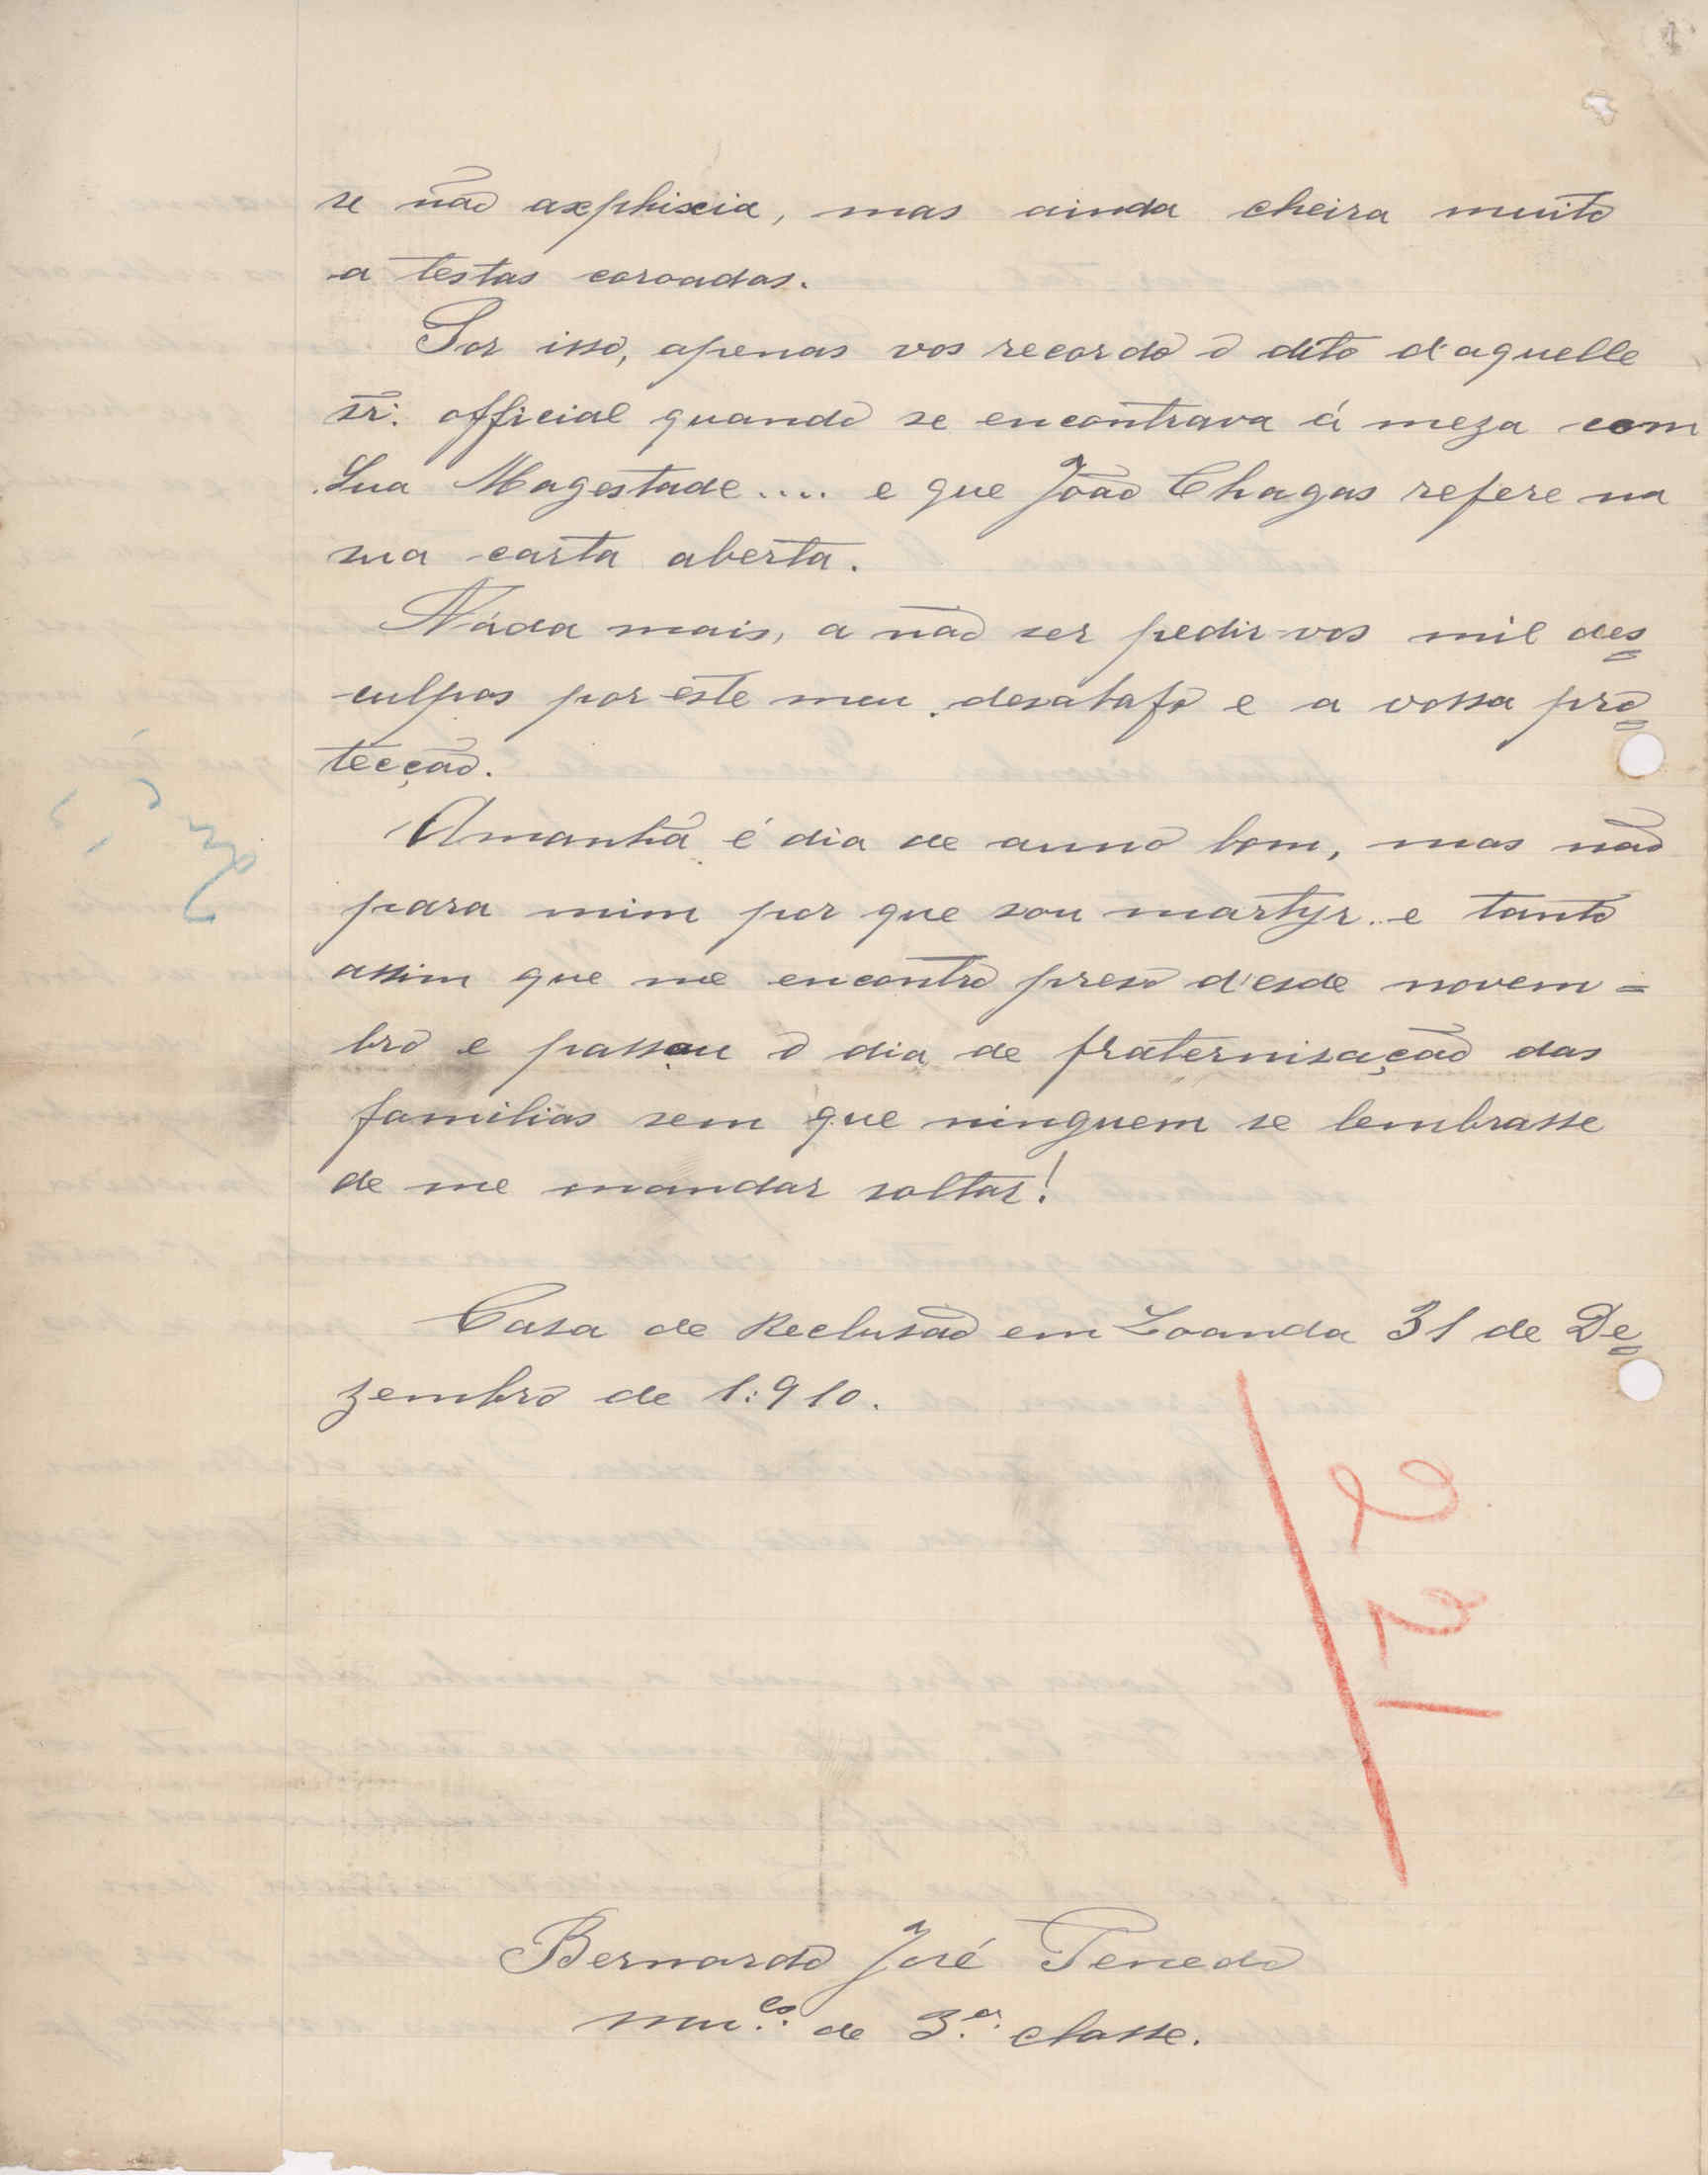 se não axphixia, mas ainda cheira muito
a testas coroadas.
Por isso, apenas vos recordo o dito d'aquelle
sr. official quando se encontrava á meza com
Sua Magestade.... e que João Chagas refere na
sua carta aberta.
Náda mais, a não ser pedir-vos mil des=
culpas por este meu desabafo e a vossa pro=
tecção.
Amanhã é dia de anno bom, mas não
para mim por que sou martyr e tanto
assim que me encontro preso d'esde novem=
bro e passou o dia de fraternisação das
familias sem que ninguem se lembrasse
de me mandar soltar!
Casa de Reclusão em Loanda 31 de De=
zembro de 1:910.
221
Bernardo José Penedo
mu.co de 3.a classe.